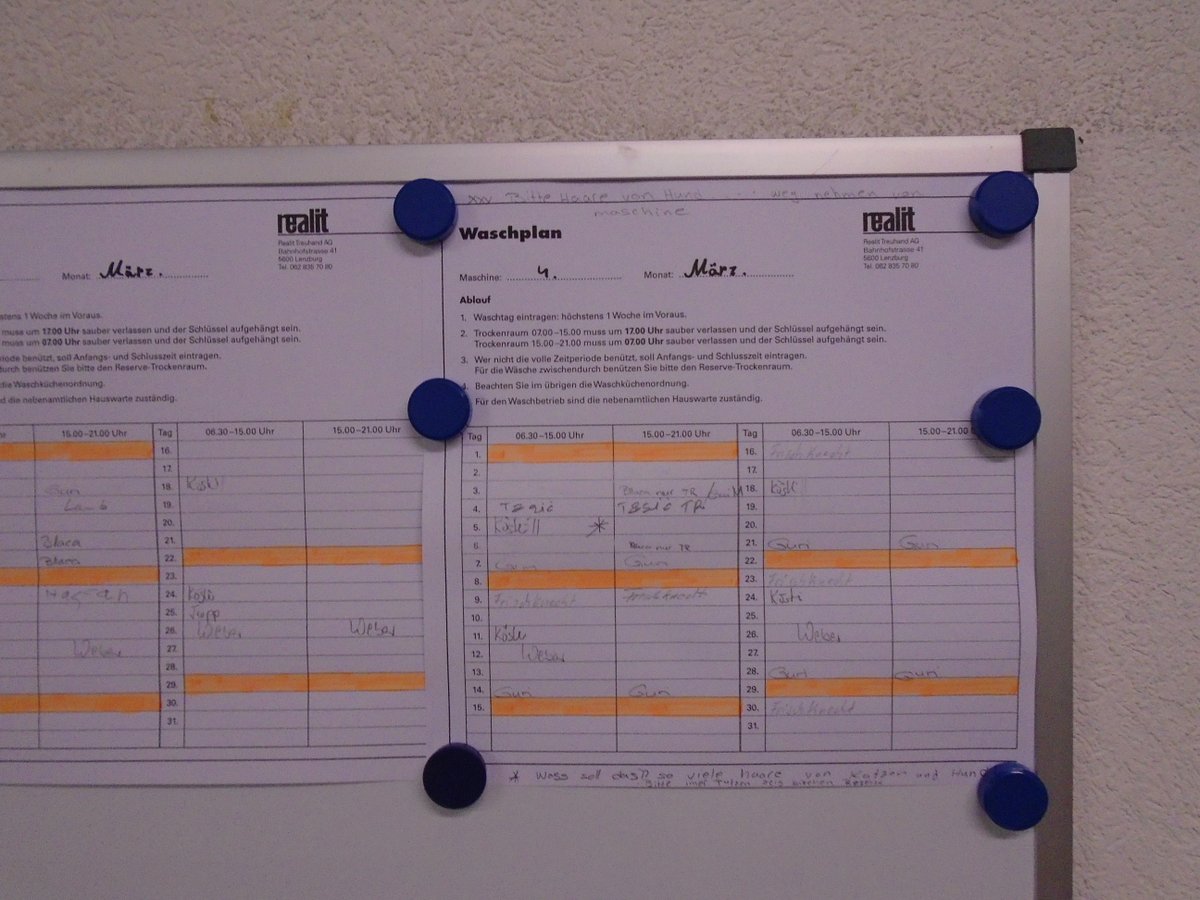 realit
Realit Treuhand AG
Bahnhofstrasse 41
5600 Lenzburg
Tel. 062 835 70 80
Monat: März.
stens 1 Woche im Voraus.
muss um 17.00 Uhr sauber verlassen und der Schlüssel aufgehängt sein.
muss um 07.00 Uhr sauber verlassen und der Schlüssel aufgehängt sein.
riode benützt, soll Anfangs- und Schlusszeit eintragen.
durch benützen Sie bitte den Reserve-Trockenraum.
die Waschküchenordnung.
d die nebenamtlichen Hauswarte zuständig.
15.00–21.00 Uhr Tag 06.30–15.00 Uhr 15.00–21.00 Uhr
16.
17.
Gun 18.
19.
20.
Blaca 21.
Blaca 22.
23.
24.
25.
26. Weber Weber
Weber 27.
28.
29.
30.
31.
Bitte Haare von Hund weg nehmen von
maschine
Waschplan
realit
Realit Treuhand AG
Bahnhofstrasse 41
5600 Lenzburg
Tel. 062 835 70 80
Maschine: 4. Monat: März.
Ablauf
1. Waschtag eintragen: höchstens 1 Woche im Voraus.
2. Trockenraum 07.00–15.00 muss um 17.00 Uhr sauber verlassen und der Schlüssel aufgehängt sein.
Trockenraum 15.00–21.00 muss um 07.00 Uhr sauber verlassen und der Schlüssel aufgehängt sein.
3. Wer nicht die volle Zeitperiode benützt, soll Anfangs- und Schlusszeit eintragen.
Für die Wäsche zwischendurch benützen Sie bitte den Reserve-Trockenraum.
4. Beachten Sie im übrigen die Waschküchenordnung.
Für den Waschbetrieb sind die nebenamtlichen Hauswarte zuständig.
Tag 06.30–15.00 Uhr 15.00–21.00 Uhr Tag 06.30–15.00 Uhr 15.00–21.0
1. 16. Frischknecht
2. 17.
3. Blaca nur TR 18.
4. 19.
5. * 20.
6. Blaca nur TR 21. Gun Gun
7. Gun Gun 22.
8. 23. Frischknecht
9. Frischknecht Frischknecht 24.
10. 25.
11. 26. Weber
12. Weber 27.
13. 28. Gun Gun
14. Gun Gun 29.
15. 30. Frischknecht
31.
* Wass soll dass so viele haare von Katzen und Hund
Bitte